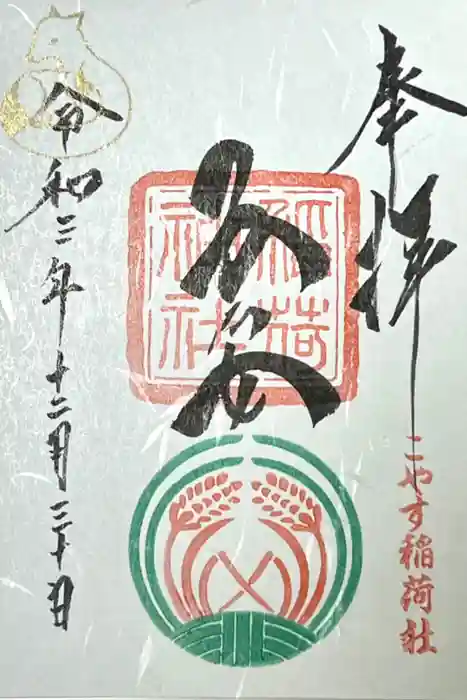 奉拝
こやす稲荷社
稲荷
神社
令和三年十二月三十日